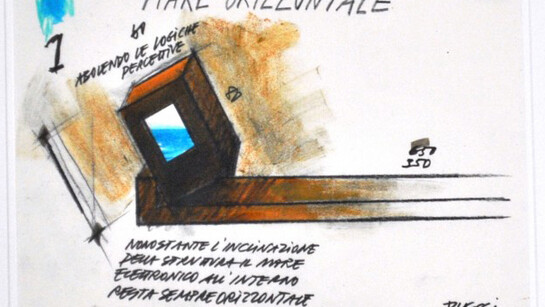 MARE ORIZZONTALE
1
80
ABOLENDO LE LOGICHE
PERCETTIVE
80
650
350
NONOSTANTE L'INCLINAZIONE
DELLA STRUTTURA IL MARE
ELETTRONICO ALL'INTERNO
RESTA SEMPRE ORIZZONTALE